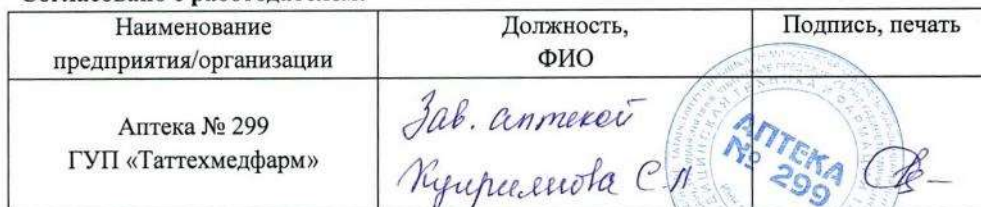 Наименование
предприятия/организации
Должность,
ФИО
Подпись, печать
Аптека № 299
ГУП «Таттехмедфарм»
Зав. аптекой
С.П
АПТЕКА
№ 299